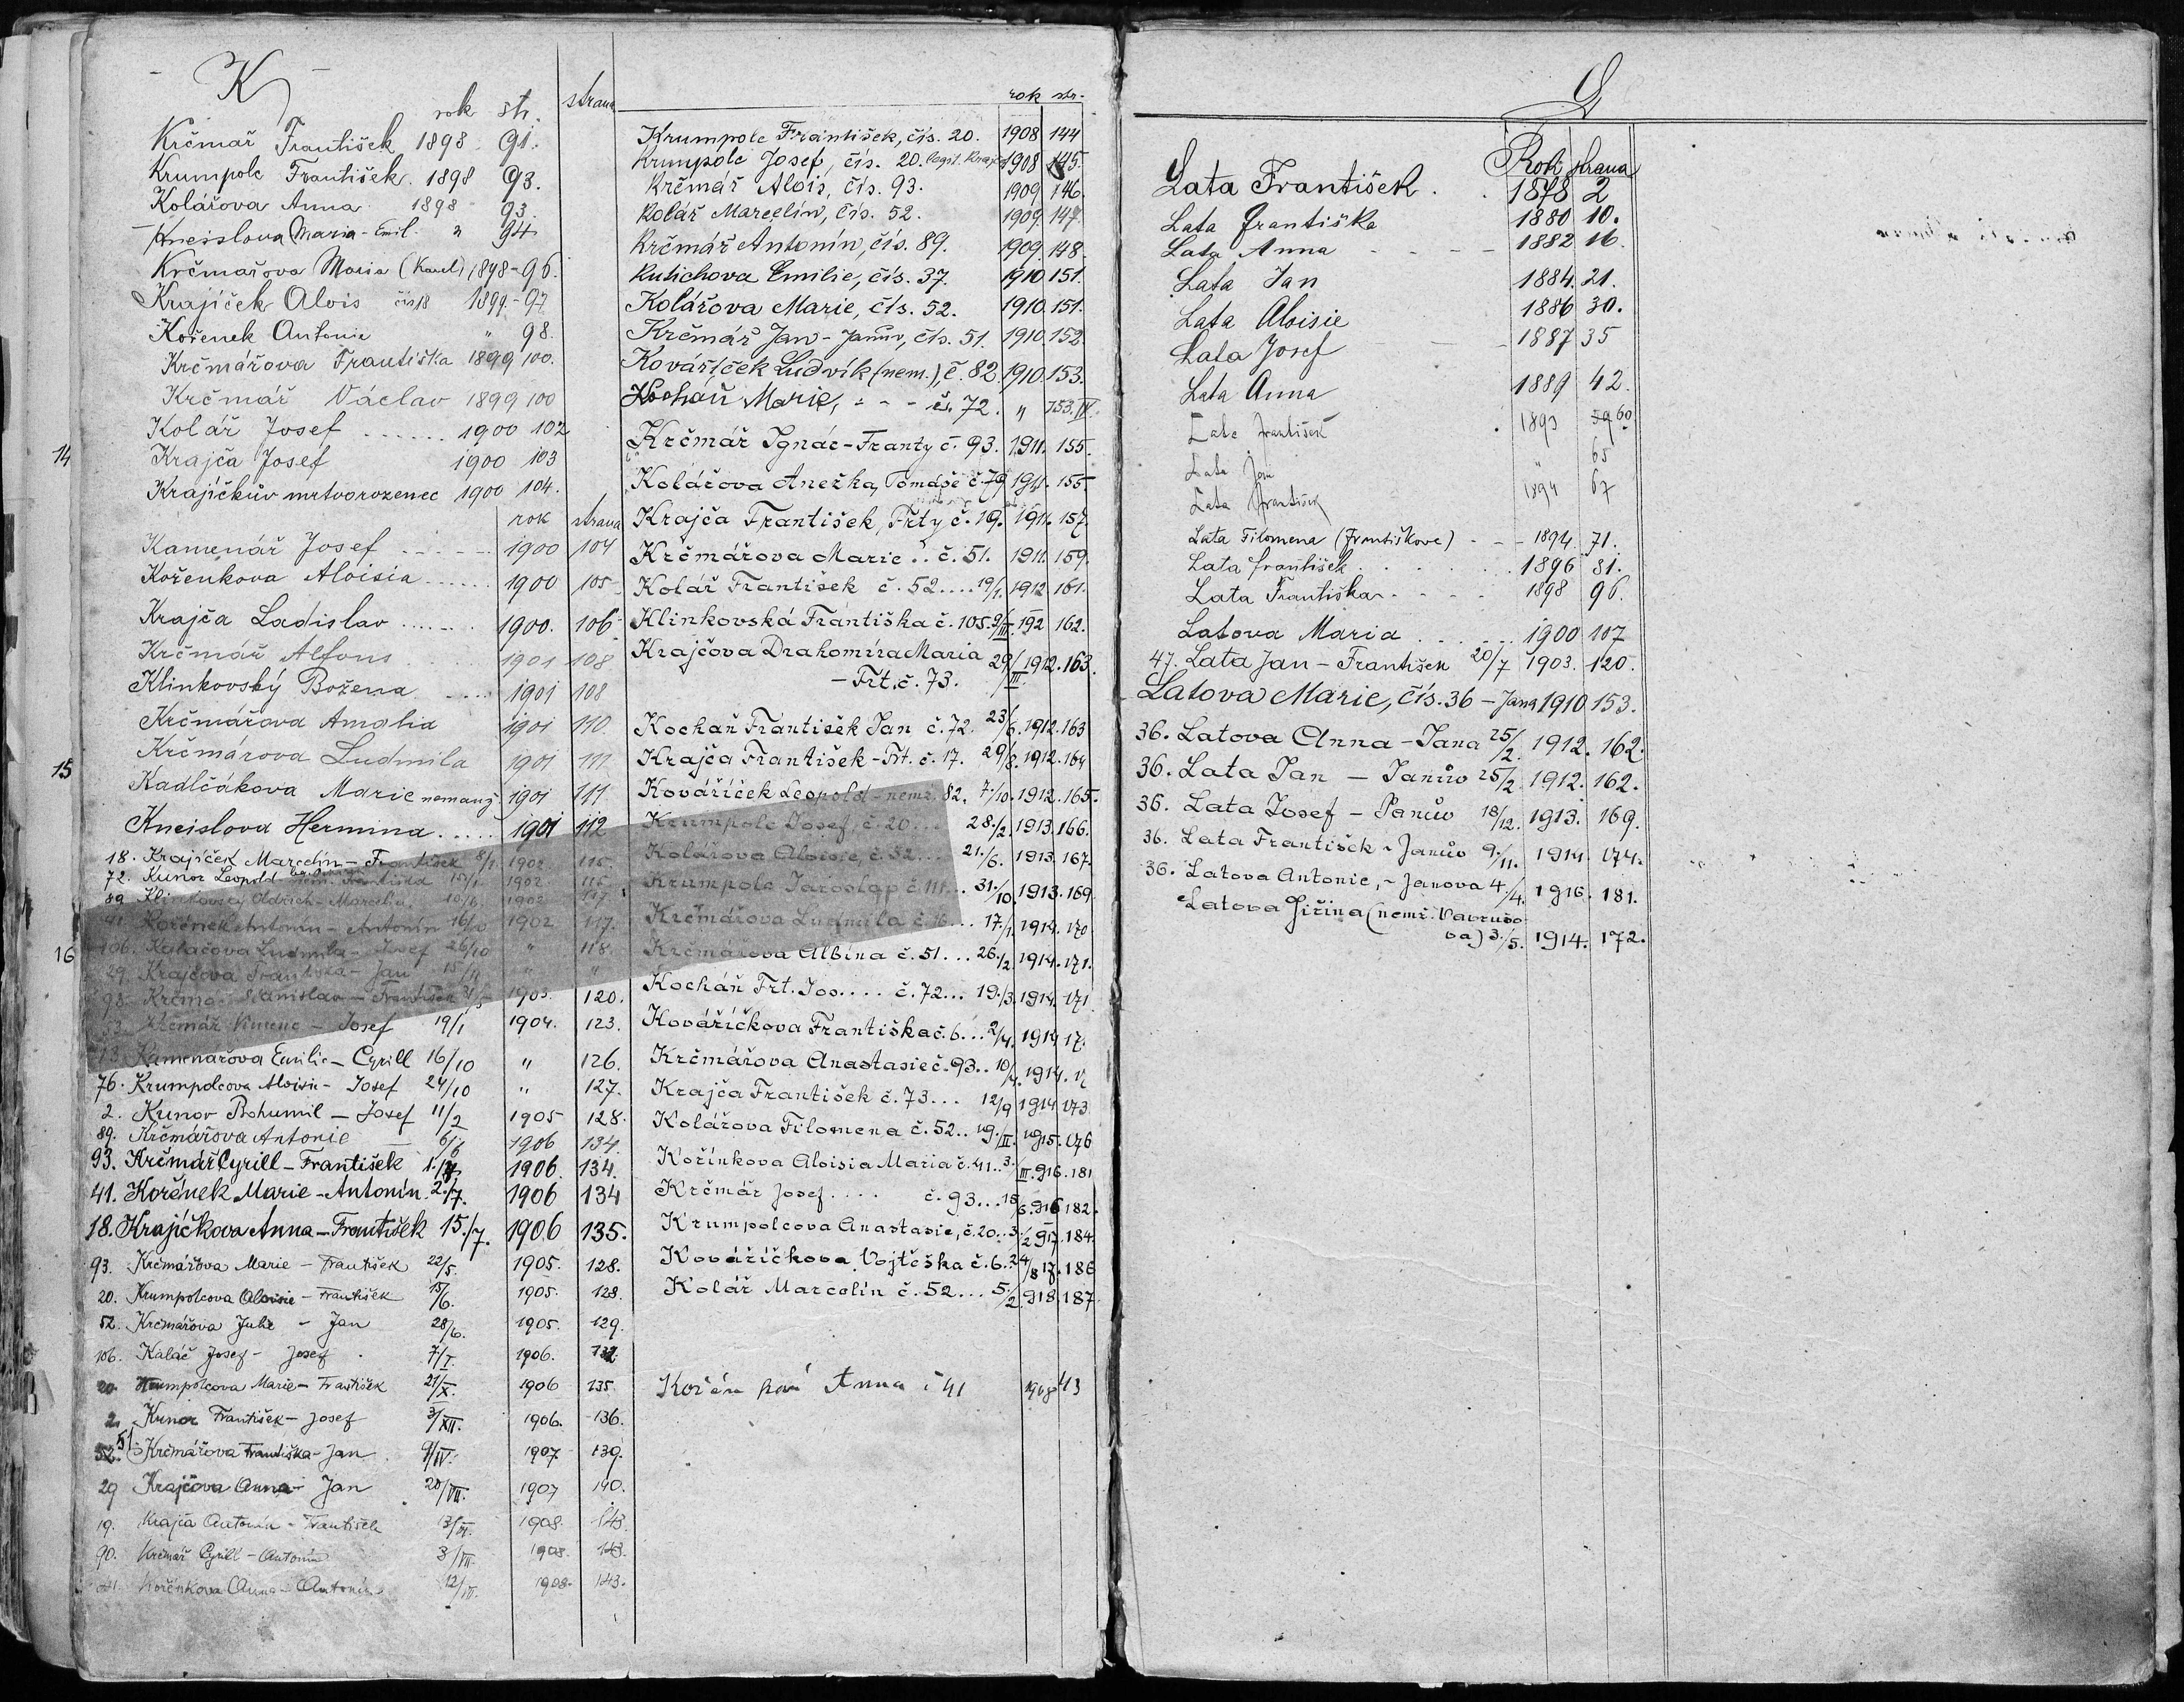 K
rok str. strana
Krčmař František 1898 91.
Krumpolc František. 1898 93.
Kolářova Anna 1898 93.
Kneislova Maria - Emil. " 94
Krčmařova Maria (Karel) 1898 - 96.
Krajíček Alois čís 18 1899 - 97
Kořenek Antonin " 98.
Krčmářova Františka 1899 100.
Krčmář Václav 1899 100
Kolář Josef ...... 1900 102
14
Krajča Josef 1900 103
Krajíčkův mrtvorozenec 1900 104.
rok strana
Kamenář Josef ..... 1900 104
Kořenkova Aloisia ...... 1900 105
Krajča Ladislav ...... 1900. 106
Krčmář Alfons 1901 108
Klinkovský Božena 1901 108
Krčmářova Amalia 1901 110.
Krčmárova Ludmila 1901 111
15
Kadlčákova Marie nemanž. 1901 111
Kneislova Hermina ..... 1901 112
18. Krajíček Marcelín - František 8/1 1902 115.
72. Kunor Leopold nem. Františka 15/1 1902 115
89 Klinkovský Oldřich - Marcelin 10/6 1902 117
41. Kořenek Antonín - Antonín 16/10 1902 117.
16
106. Kalačova Ludmila - Josef 26/10 " 118.
29. Krajčova Františka - Jan 15/11 " "
98. Krčmař Stanislav - František 1903. 120.
Krčmář - Josef 19/1 1904. 123.
13. Kamenářova Emilie - Cyrill 16/10 " 126.
76. Krumpolcova Aloisie - Josef 24/10 " 127.
2. Kunov Bohumil - Josef 11/2 1905 128.
89. Krčmářova Antonie 6/6 1906 134.
93. Krčmář Cyrill - František 1./7. 1906. 134.
41. Kořének Marie - Antonín. 2./7. 1906 134
18. Krajíčkova Anna - František 15./7. 1906 135.
93. Krčmářova Marie - František 22/5. 1905. 128.
20. Krumpolcova Aloisie - František 15/6. 1905. 128.
52. Krčmářova Julie - Jan 28/6. 1905. 129.
106. Kalač Josef - Josef 7/I. 1906. 132.
20. Krumpolcova Marie - František 21/X. 1906 135.
2. Kunor František - Josef 3/XII. 1906. 136.
52. 51. Krčmářova Františka - Jan 9/IV. 1907. 139.
29 Krajčova Anna - Jan 20/VII. 1907 140.
19. Krajča Antonín - František 13/VI. 1908. 143.
90. Krčmář Cyrill - Antonín 3/VII. 1908. 143.
41. Kořénkova Anna - Antonín. 12/VII. 1908. 143.
rok str.
Krumpolc František, čís. 20. 1908 144
Krumpolc Josef, čís. 20. legit. Krajča 1908 145.
Krčmář Alois, čís. 93. 1909 146.
Kolář Marcelín, čís. 52. 1909. 147.
Krčmář Antonín, čís. 89. 1909. 148.
Kutichova Emilie, čís. 37. 1910. 151.
Kolářova Marie, čís. 52. 1910. 151.
Krčmář Jan - Janův, čís. 51. 1910. 152.
Kovaříček Ludvík (nem.), č. 82. 1910. 153.
Kochaň Marie, - - - čs. 72. " 153. IV.
Krčmář Ignác - Franty č. 93. 1911. 155.
Koláčova Anežka, Tomáše č. 79 1911. 155.
Krajča František, Frty č. 19. 1911. 157.
Krčmářova Marie .. č. 51. 1911. 159.
Kolář František č. 52.... 19/1. 1912 161.
Klinkovská Františka č. 105. 9/II. 192 162.
Krajčova Drahomíra Maria 29/III. 1912. 163.
- Frt. č. 73.
Kochaň František Jan č. 72. 23/6. 1912. 163
Krajča František - Frt. č. 17. 29/8. 1912. 164
Kovářiček Leopold - nemž. 82. 7./10. 1912. 165.
Krumpolc Josef, č. 20... 28./2. 1913. 166.
Kolářova Aloisie, č. 52... 21./6. 1913. 167.
Krumpolc Jaroslav č. 111... 31./10. 1913. 169
Krčmářova Ludmila č. 16... 17./1. 1914. 170
Krčmářova Albína č. 51... 26./2. 1914. 171.
Kochaň Frt. Jos.... č. 72... 19./3. 1914. 171
Kováříčkova Františka č. 6... 2/4. 1914 17.
Krčmářova Anastasie č. 93.. 10/4. 1914. 17
Krajča František č. 73... 12/9 1914 173
Kolářova Filomena č. 52.. 19./II. 1915. 176
Kořínkova Aloisia Maria č. 41.. 3./III. 916. 181
Krčmář Josef.... č. 93... 18/6. 916 182.
Krumpolcova Anastasie, č. 20.. 3./2 917. 184.
Kováříčkova Vojtěška č. 6. 24/8 17. 186
Kolář Marcelín č. 52... 5./2. 918. 187.
Anna č 41 1908 143
L
Rok strana
Lata František . . 1878 2
Lata Františka 1880 10.
Lata Anna - - - 1882 16.
Lata Jan 1884. 21.
Lata Aloisie 1886 30.
Lata Josef - - - 1887 35
Lata Anna 1889 42.
Lata František 1893 59 60
Lata Jan " 65
Lata František 1894 67
Lata Filomena (Františkova) - - - 1894. 71.
Lata František. . . . . . 1896 81.
Lata Františka . . . . 1898 96.
Latova Maria . . . . . 1900 107
47. Lata Jan - František 20/7 1903. 120.
Latova Marie, čís. 36 - Jana 1910. 153.
36. Latova Anna - Jana 25/2. 1912. 162.
36. Lata Jan - Janův 25/2. 1912. 162.
36. Lata Josef - Janův 18/12. 1913. 169.
36. Lata František - Janův 9./11. 1914. 174.
36. Latova Antonie, - Janova 4./4. 1916. 181.
Latova Jiřina (nemž. Vavrušo-
va) 3./5. 1914. 172.